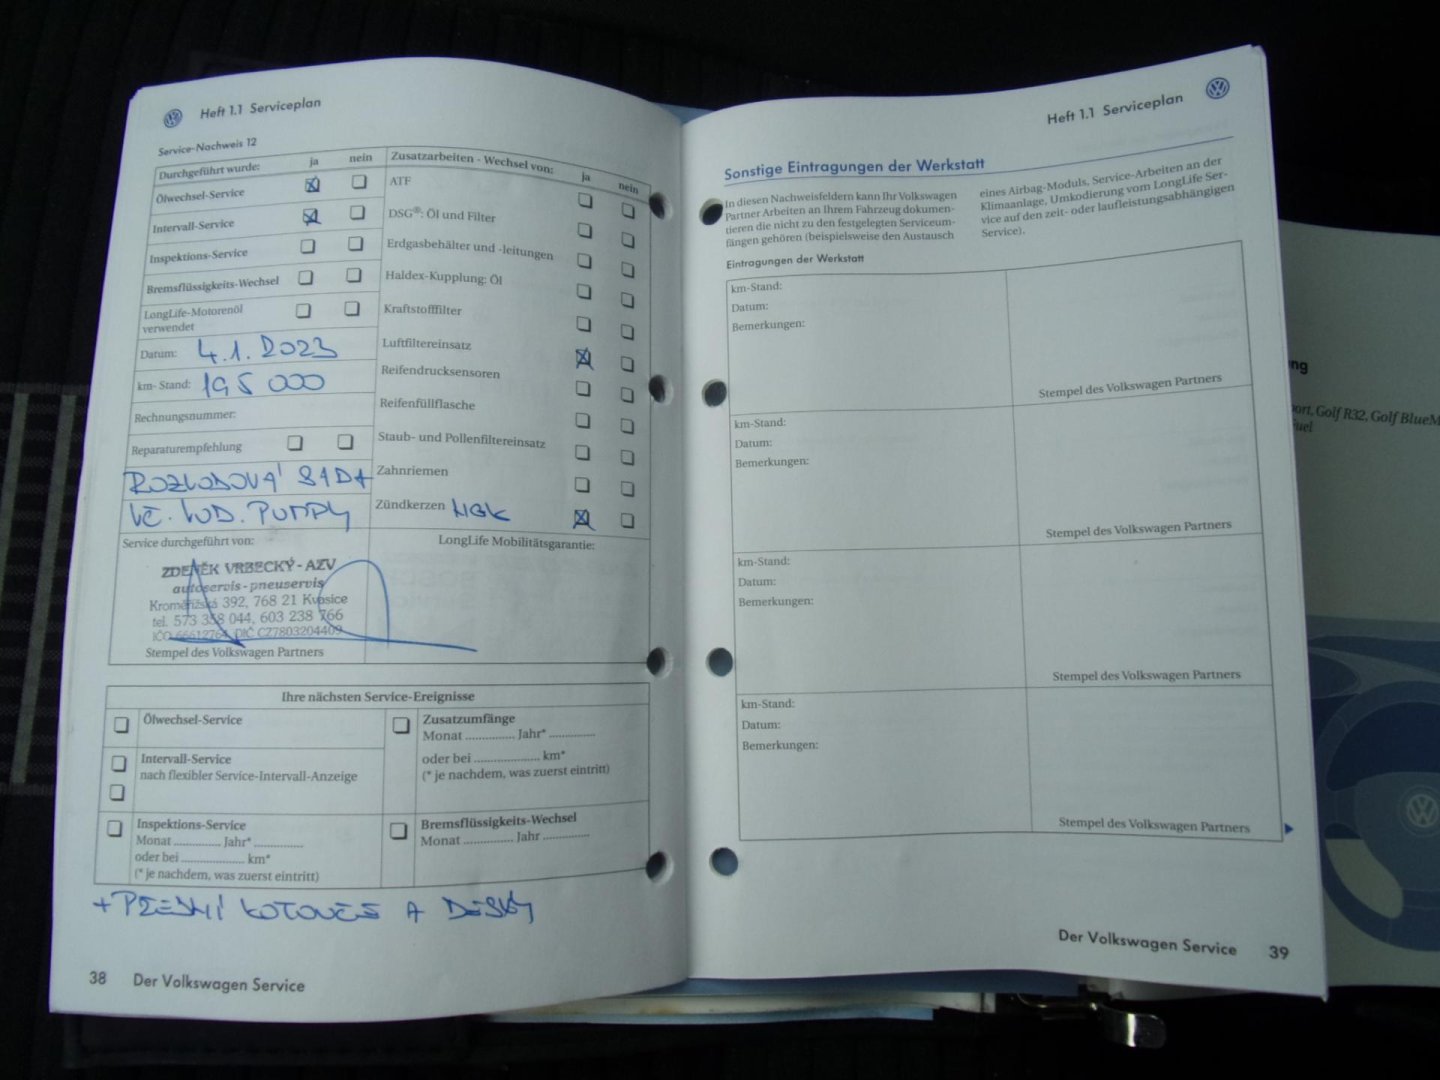 Heft 1.1 Serviceplan
Service-Nachweis 12
Durchgeführt wurde: ja nein
Ölwechsel-Service
Intervall-Service
Inspektions-Service
Bremsflüssigkeits-Wechsel
LongLife-Motorenöl
verwendet
Datum: 4.1.2023
km- Stand: 195 000
Rechnungsnummer:
Reparaturempfehlung
ROZVODOVÁ SADA
VČ. VOD. PUMPY
Service durchgeführt von:
ZDENĚK VRBECKÝ - AZV
autoservis - pneuservis
Kroměřížská 392, 768 21 Kvasice
tel. 573 358 044, 603 238 766
IČO 66612764, DIČ CZ7803204409
Stempel des Volkswagen Partners
Zusatzarbeiten - Wechsel von: ja nein
ATF
DSG®: Öl und Filter
Erdgasbehälter und -leitungen
Haldex-Kupplung: Öl
Kraftstofffilter
Luftfiltereinsatz
Reifendrucksensoren
Reifenfüllflasche
Staub- und Pollenfiltereinsatz
Zahnriemen
Zündkerzen NGK
LongLife Mobilitätsgarantie:
Ihre nächsten Service-Ereignisse
Ölwechsel-Service
Intervall-Service
nach flexibler Service-Intervall-Anzeige
Inspektions-Service
Monat .............. Jahr* ..............
oder bei ................... km*
(* je nachdem, was zuerst eintritt)
Zusatzumfänge
Monat ............... Jahr* ..............
oder bei .................... km*
(* je nachdem, was zuerst eintritt)
Bremsflüssigkeits-Wechsel
Monat ............... Jahr ..............
+ PŘEDNÍ KOTOUČE A DESKY
38 Der Volkswagen Service
Heft 1.1 Serviceplan
Sonstige Eintragungen der Werkstatt
In diesen Nachweisfeldern kann Ihr Volkswagen
Partner Arbeiten an Ihrem Fahrzeug dokumen-
tieren die nicht zu den festgelegten Serviceum-
fängen gehören (beispielsweise den Austausch
eines Airbag-Moduls, Service-Arbeiten an der
Klimaanlage, Umkodierung vom LongLife Ser-
vice auf den zeit- oder laufleistungsabhängigen
Service).
Eintragungen der Werkstatt
km-Stand:
Datum:
Bemerkungen:
Stempel des Volkswagen Partners
km-Stand:
Datum:
Bemerkungen:
Stempel des Volkswagen Partners
km-Stand:
Datum:
Bemerkungen:
Stempel des Volkswagen Partners
km-Stand:
Datum:
Bemerkungen:
Stempel des Volkswagen Partners
Der Volkswagen Service 39
ng
ort, Golf R32, Golf BlueM
uel